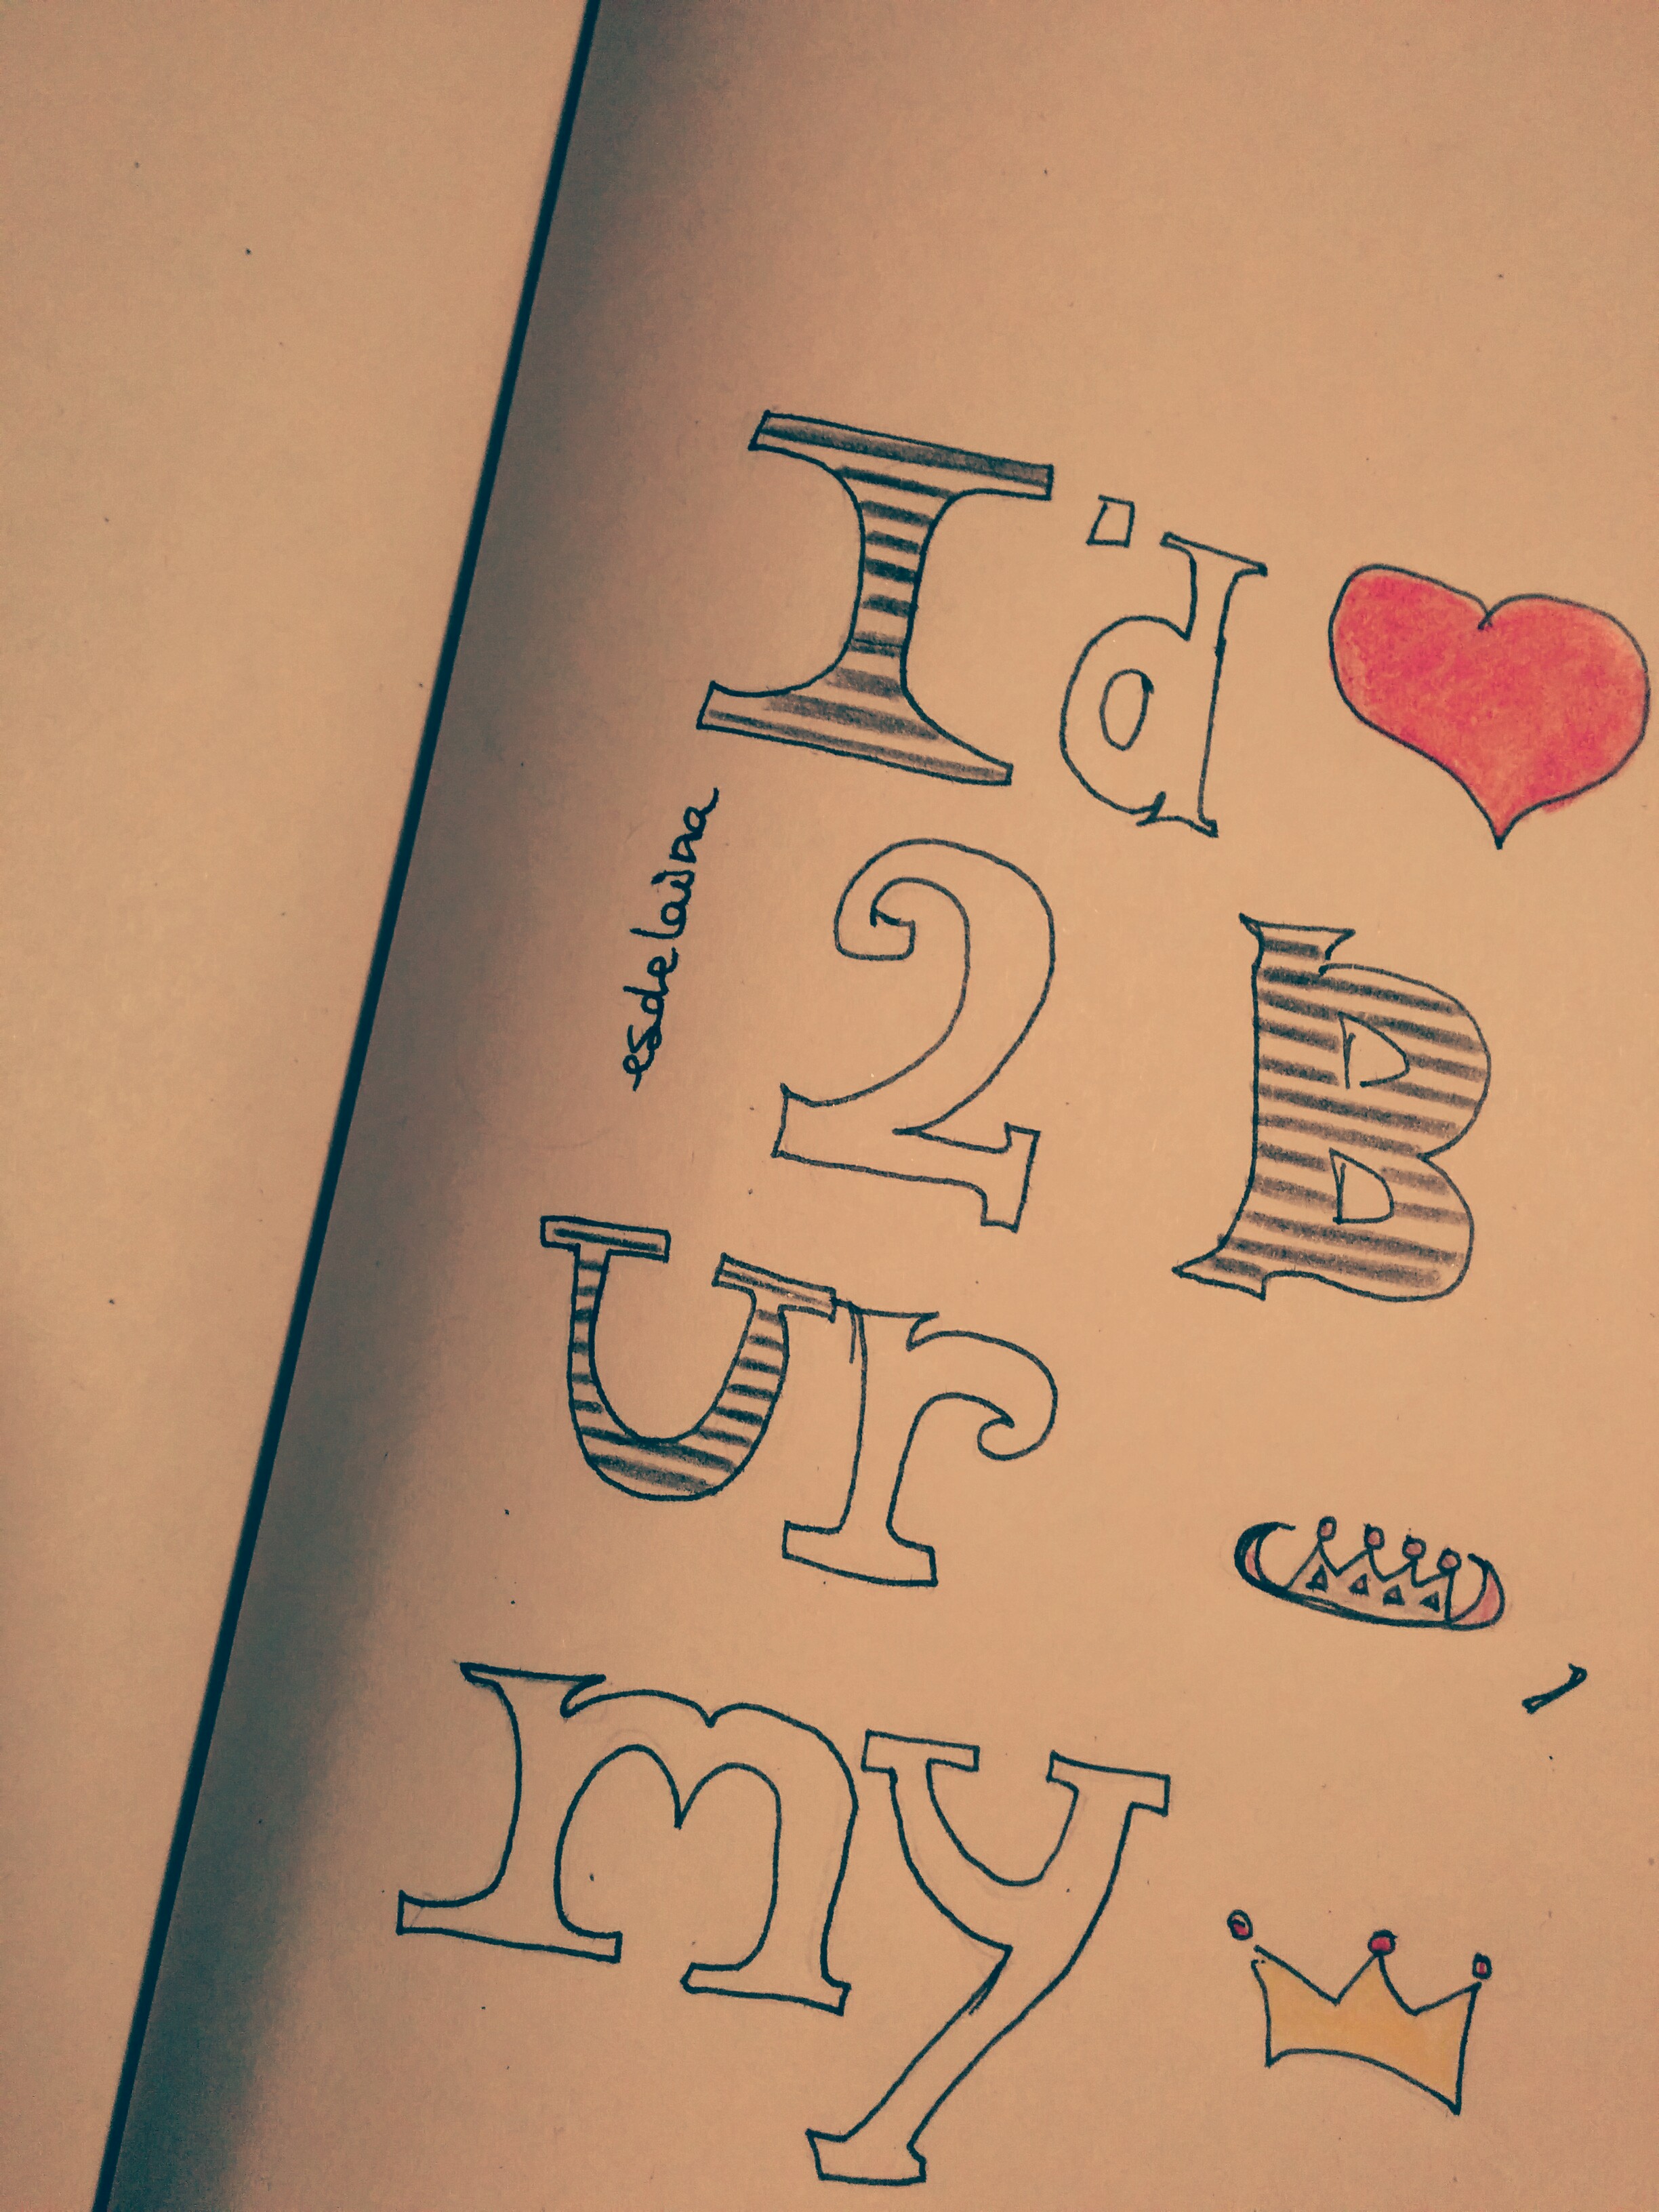 I'd
2 B
Ur ,
my
esdelaina